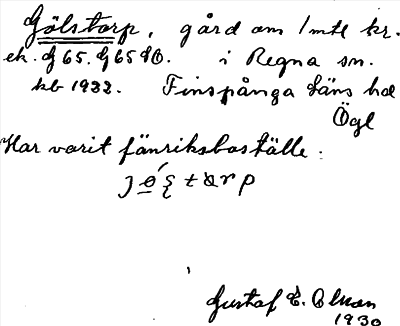 Gölstorp, gård om 1 mtl kr.
ek. G 65. G 65 i Regna sn.
kb 1922. Finspånga läns hd
Ögl
Har varit fänriksboställe:
Gustaf E. Olsson
1930